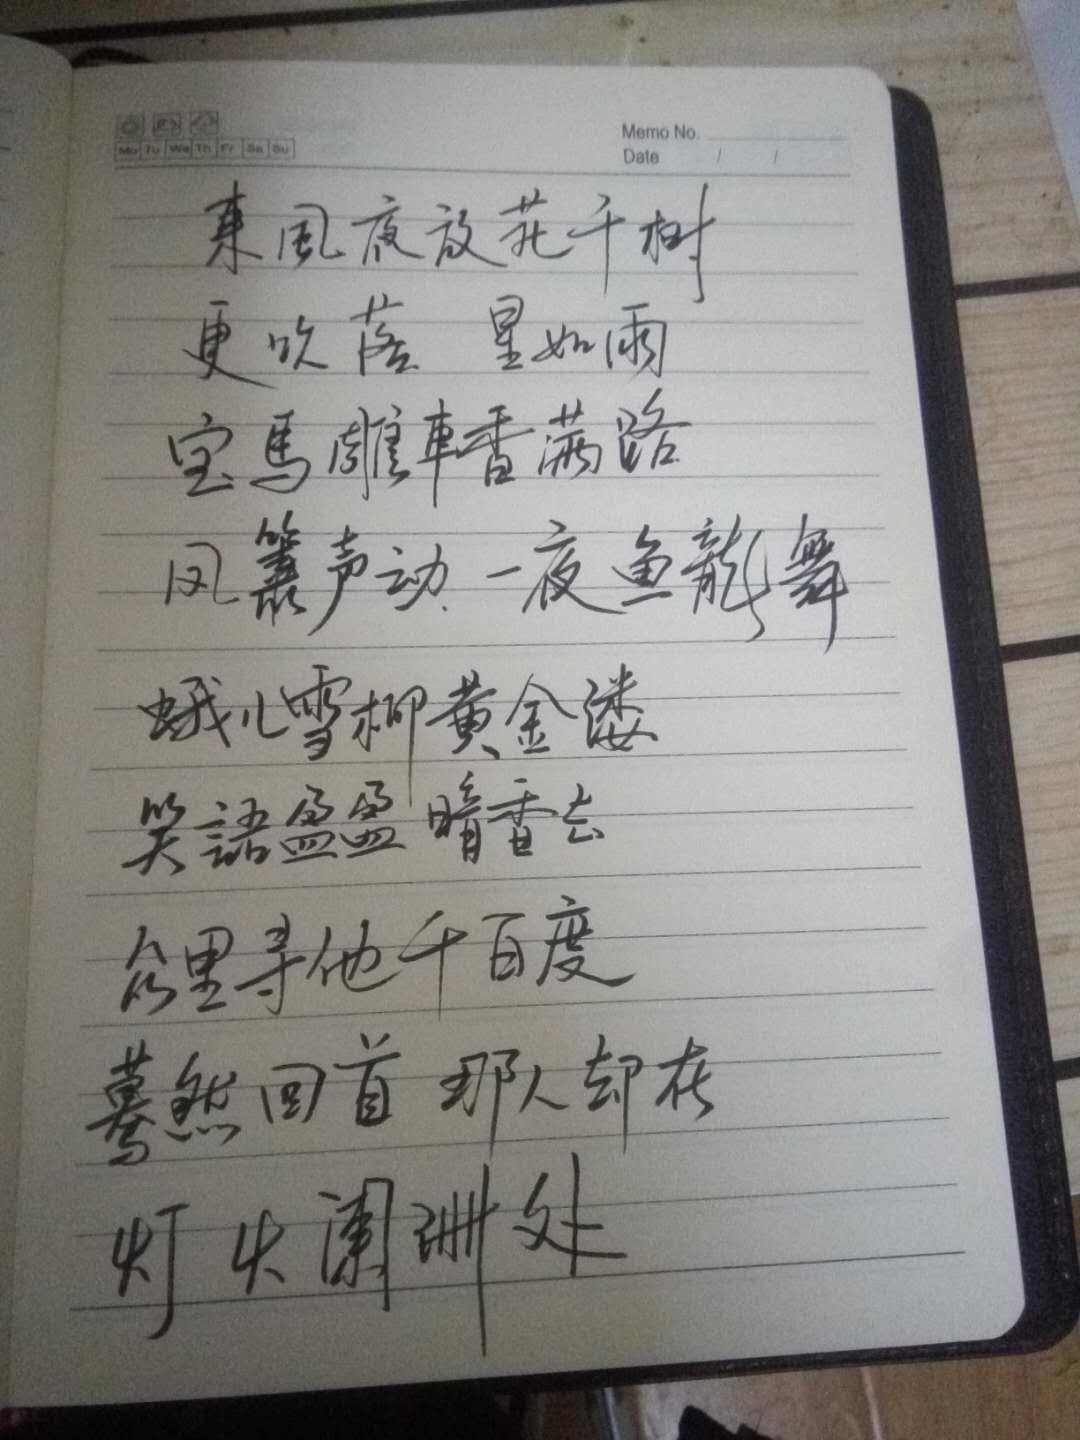 Memo No.
Mo Tu We Th Fr Sa Su
Date / /
東風夜放花千树
更吹落 星如雨
宝馬雕車香满路
风簫声动、一夜鱼龍舞
蛾儿雪柳黄金缕
笑語盈盈暗香去
众里寻他千百度
驀然回首 那人却在
灯火阑珊处